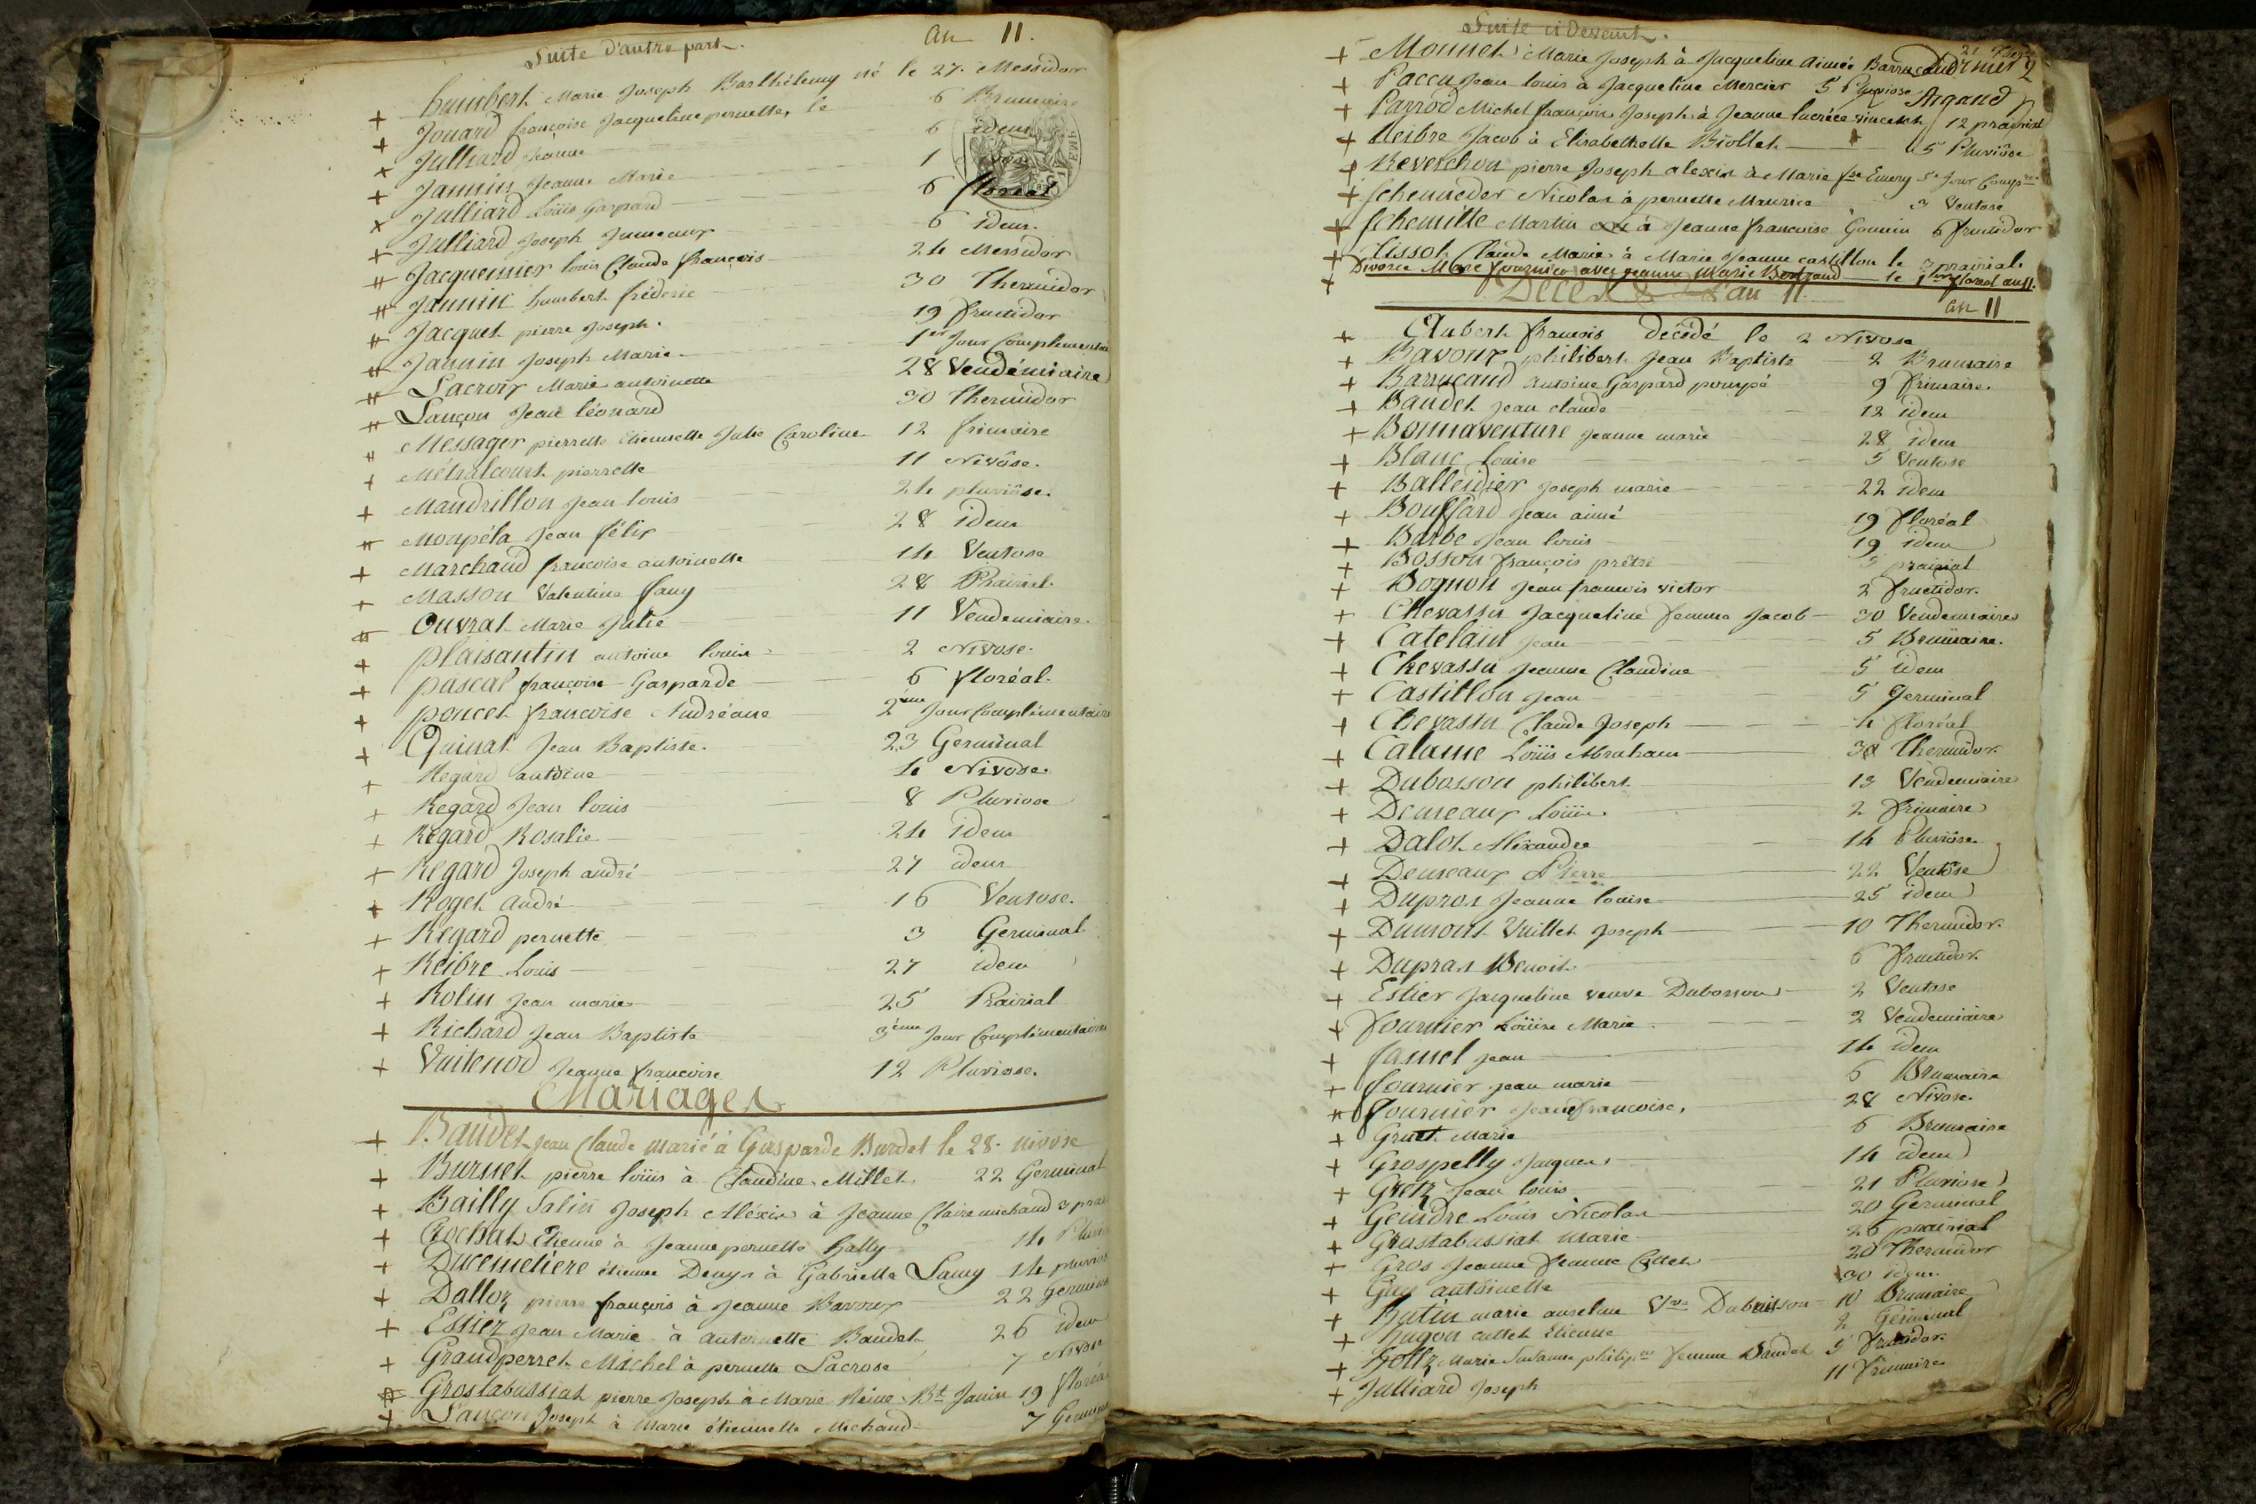 Suite d'autre part. an 11.
humbert Marie Joseph Barthélemy né le 27. Messidor
Jouard françoise Jacqueline pernette, le 6 Brumaire
Julliard Jeanne 6 idem
Jannin Jeanne Marie 1
Julliard Loüis Gaspard 6 floréal
Julliard Joseph Jumeaux 6 idem.
Jacquemier louis Claude françois 24 Messidor
Jannin humbert fréderic 30 Thermidor
Jacquet pierre Joseph. 19 fructidor
Jannin Joseph Marie 1er Jour Complementaire
Lacroix Marie antoinette 28 Vendémiaire
Lançon Jean léonard 30 thermidor
Messager pierrette Etiennette Julie Caroline 12 frimaire
Métralcourt pierrette 11 Nivôse.
Mandrillon Jean louis 24 pluviôse.
Monpéla Jean félix 28 idem
Marchand francoise antoinette 14 Ventose
Masson Valentine fany 28 Prairial.
Ouvrat Marie Julie 11 Vendemiaire.
plaisantin antoine louis 2 Nivose.
pascal françoise Gasparde 6 floréal.
poncet francoise Andréane 2ème Jour Complémentaire
Quinat Jean Baptiste. 23 Germinal
Regard antoine 4 Nivose
Regard Jean louis 8 Pluviose
Regard Rosalie 24 idem
Regard Joseph andré 27 idem
Roget andré 16 Ventose.
Regard pernette 3 Germinal
Reibre Louis 27 idem
Rolin Jean marie 25 Prairial
Richard Jean Baptiste 3ème Jour Complémentaire
Vuitenod Jeanne francoise 12 Pluviose.
Mariages
Baudet Jean Claude marié à Gasparde Burdet le 28. nivose
Burnet pierre loüis à Claudine Millet 22 Germinal
Bailly Salin Joseph Aléxis à Jeanne Claire michaud 3 prai
Crochat Etienne à Jeanne pernette Gally 14 Pluvi
Ducimetiere étienne Denys à Gabrielle Lamy 14 pluvios
Dalloz pierre françois à Jeanne Bavoux 22 Germinal
Estiez Jean Marie à antoinette Baudet 26 idem
Grandperret Michel à pernette Lacrose 7 Nivose
Grostabussiat pierre Joseph à Marie Reine Bt Janin 19 floréal
Lançon Joseph à Marie étiennette Michaud 7 Germinal
Suite ci Devant.
Monnet Marie Joseph à Jacqueline aimée Barrucand 21
Paccu Jean louis à Jacqueline Mercier 5 Pluviose
Parrod Michel françois Joseph à Jeanne lucrèce vincent Argand 12 prairial
Reibre Jacob à Elisabethe Biollet 5 Pluviôse
Reverchon pierre Joseph alexis à Marie fse Emery 5e Jour Compre
Schenneder Nicolas à pernette Maurice 3 Ventose
Schemitte Martin à Jeanne francoise Gounin 6 fructidor
Tissot Claude Marie à Marie Jeanne castillon le 3 prairial.
Divorce Marc fournier avec Jeanne Marie Bertrand le 1er floréal an 11.
Décès L'an 11.
an 11
Aubert francois décédé le 2 Nivose
Bavoux philibert Jean Baptiste 2 Brumaire
Barrucand antoine Gaspard pompé 9 frimaire.
Baudet Jean claude 12 idem
Bonnaventure Jeanne marie 28 idem
Blanc Louise 5 Ventose
Balleidier Joseph marie 22 idem
Bouffard Jean aimé 19 floréal
Barbe Jean louis 19 idem
Bosson françois prêtre 5 prairial
Bognon Jean francois victor 2 fructidor.
Chevassu Jacqueline femme Jacob 30 Vendemiaire
Catelain Jean 5 Brumaire.
Chevassu Jeanne Claudine 5 idem
Castillon Jean 5 Germinal
Chevassu Claude Joseph 4 floréal
Calame Loüis Abraham 30 Thermidor.
Dubosson philibert 13 Vendemiaire
Demeaux Loüis 2 frimaire
Dalot Aléxandre 14 Pluviôse.
Demeaux Pierre 22 Ventôse
Dupras Jeanne louise 25 idem
Dumont Vuillet Joseph 10 Thermidor.
Dupras Benoit 6 fructidor.
Estier Jacqueline veuve Dubosson 2 Ventose
fournier Loüise Marie 2 Vendemiaire
famel Jean 14 idem
fournier Jean marie 6 Brumaire
fournier Jean francoise, 28 Nivose.
Gruet Marie 6 Brumaire
Grospelly Jacques 14 idem
Gretz Jean louis 21 Pluviose
Geindre Louis Nicolas 20 Germinal
Grostabussiat Marie 26 prairial
Gros Jeanne femme Cottet 20 Thermidor
Guy antoinette 30 idem.
hutin marie anselme Vve Dubuisson 10 Brumaire
hugon cuttet Etienne 2 Germinal
holtz Marie Susanne philipne femme Baudet 5 fructidor.
Julliard Joseph 11 frimaire